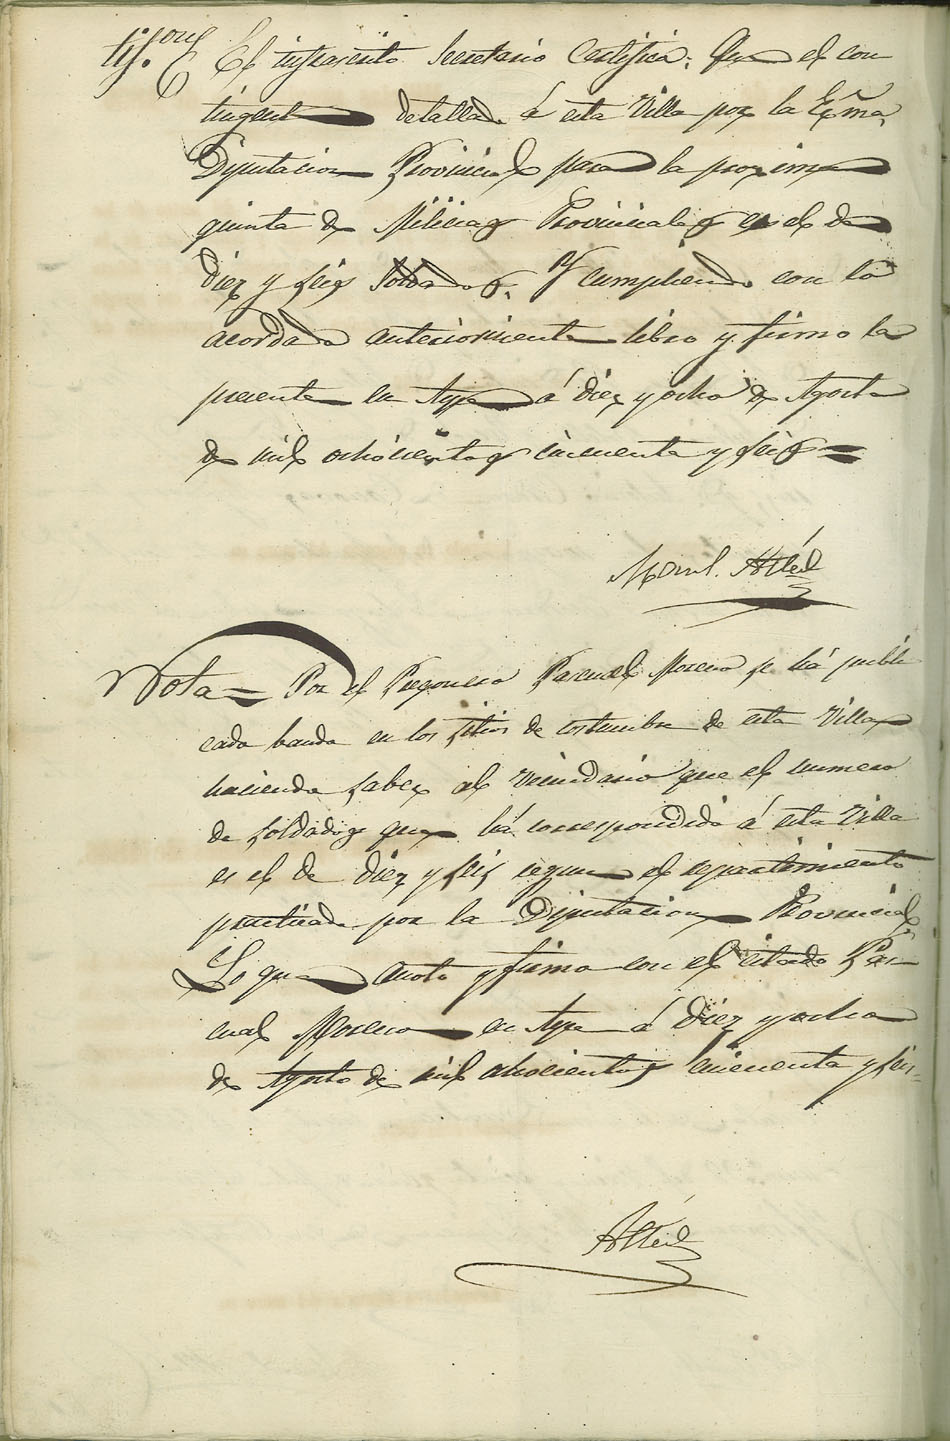 El infrascrito Secretario Certifica: Que el con
tingente detallado á esta Villa por la Exma.
Diputacion Provincial para la proxima
quinta de Milicias Provinciales es el de
diez y seis Soldados. Y cumpliendo con lo
acordado anteriormente libro y firmo la
presente en Aspe á diez y ocho de Agosto
de mil ochocientos cincuenta y seis =
Man.l
Nota = Por el Pregonero Pascual Moreno se há publi
cado bando en los sitios de costumbre de esta Villa
haciendo saber al vecindario que el numero
de soldados que há correspondido á esta Villa
es el de diez y seis segun el repartimiento
practicado por la Diputacion Provincial.
Lo que anoto y firmo con el citado Pas
cual Moreno en Aspe á diez y ocho
de Agosto de mil ochocientos cincuenta y seis =